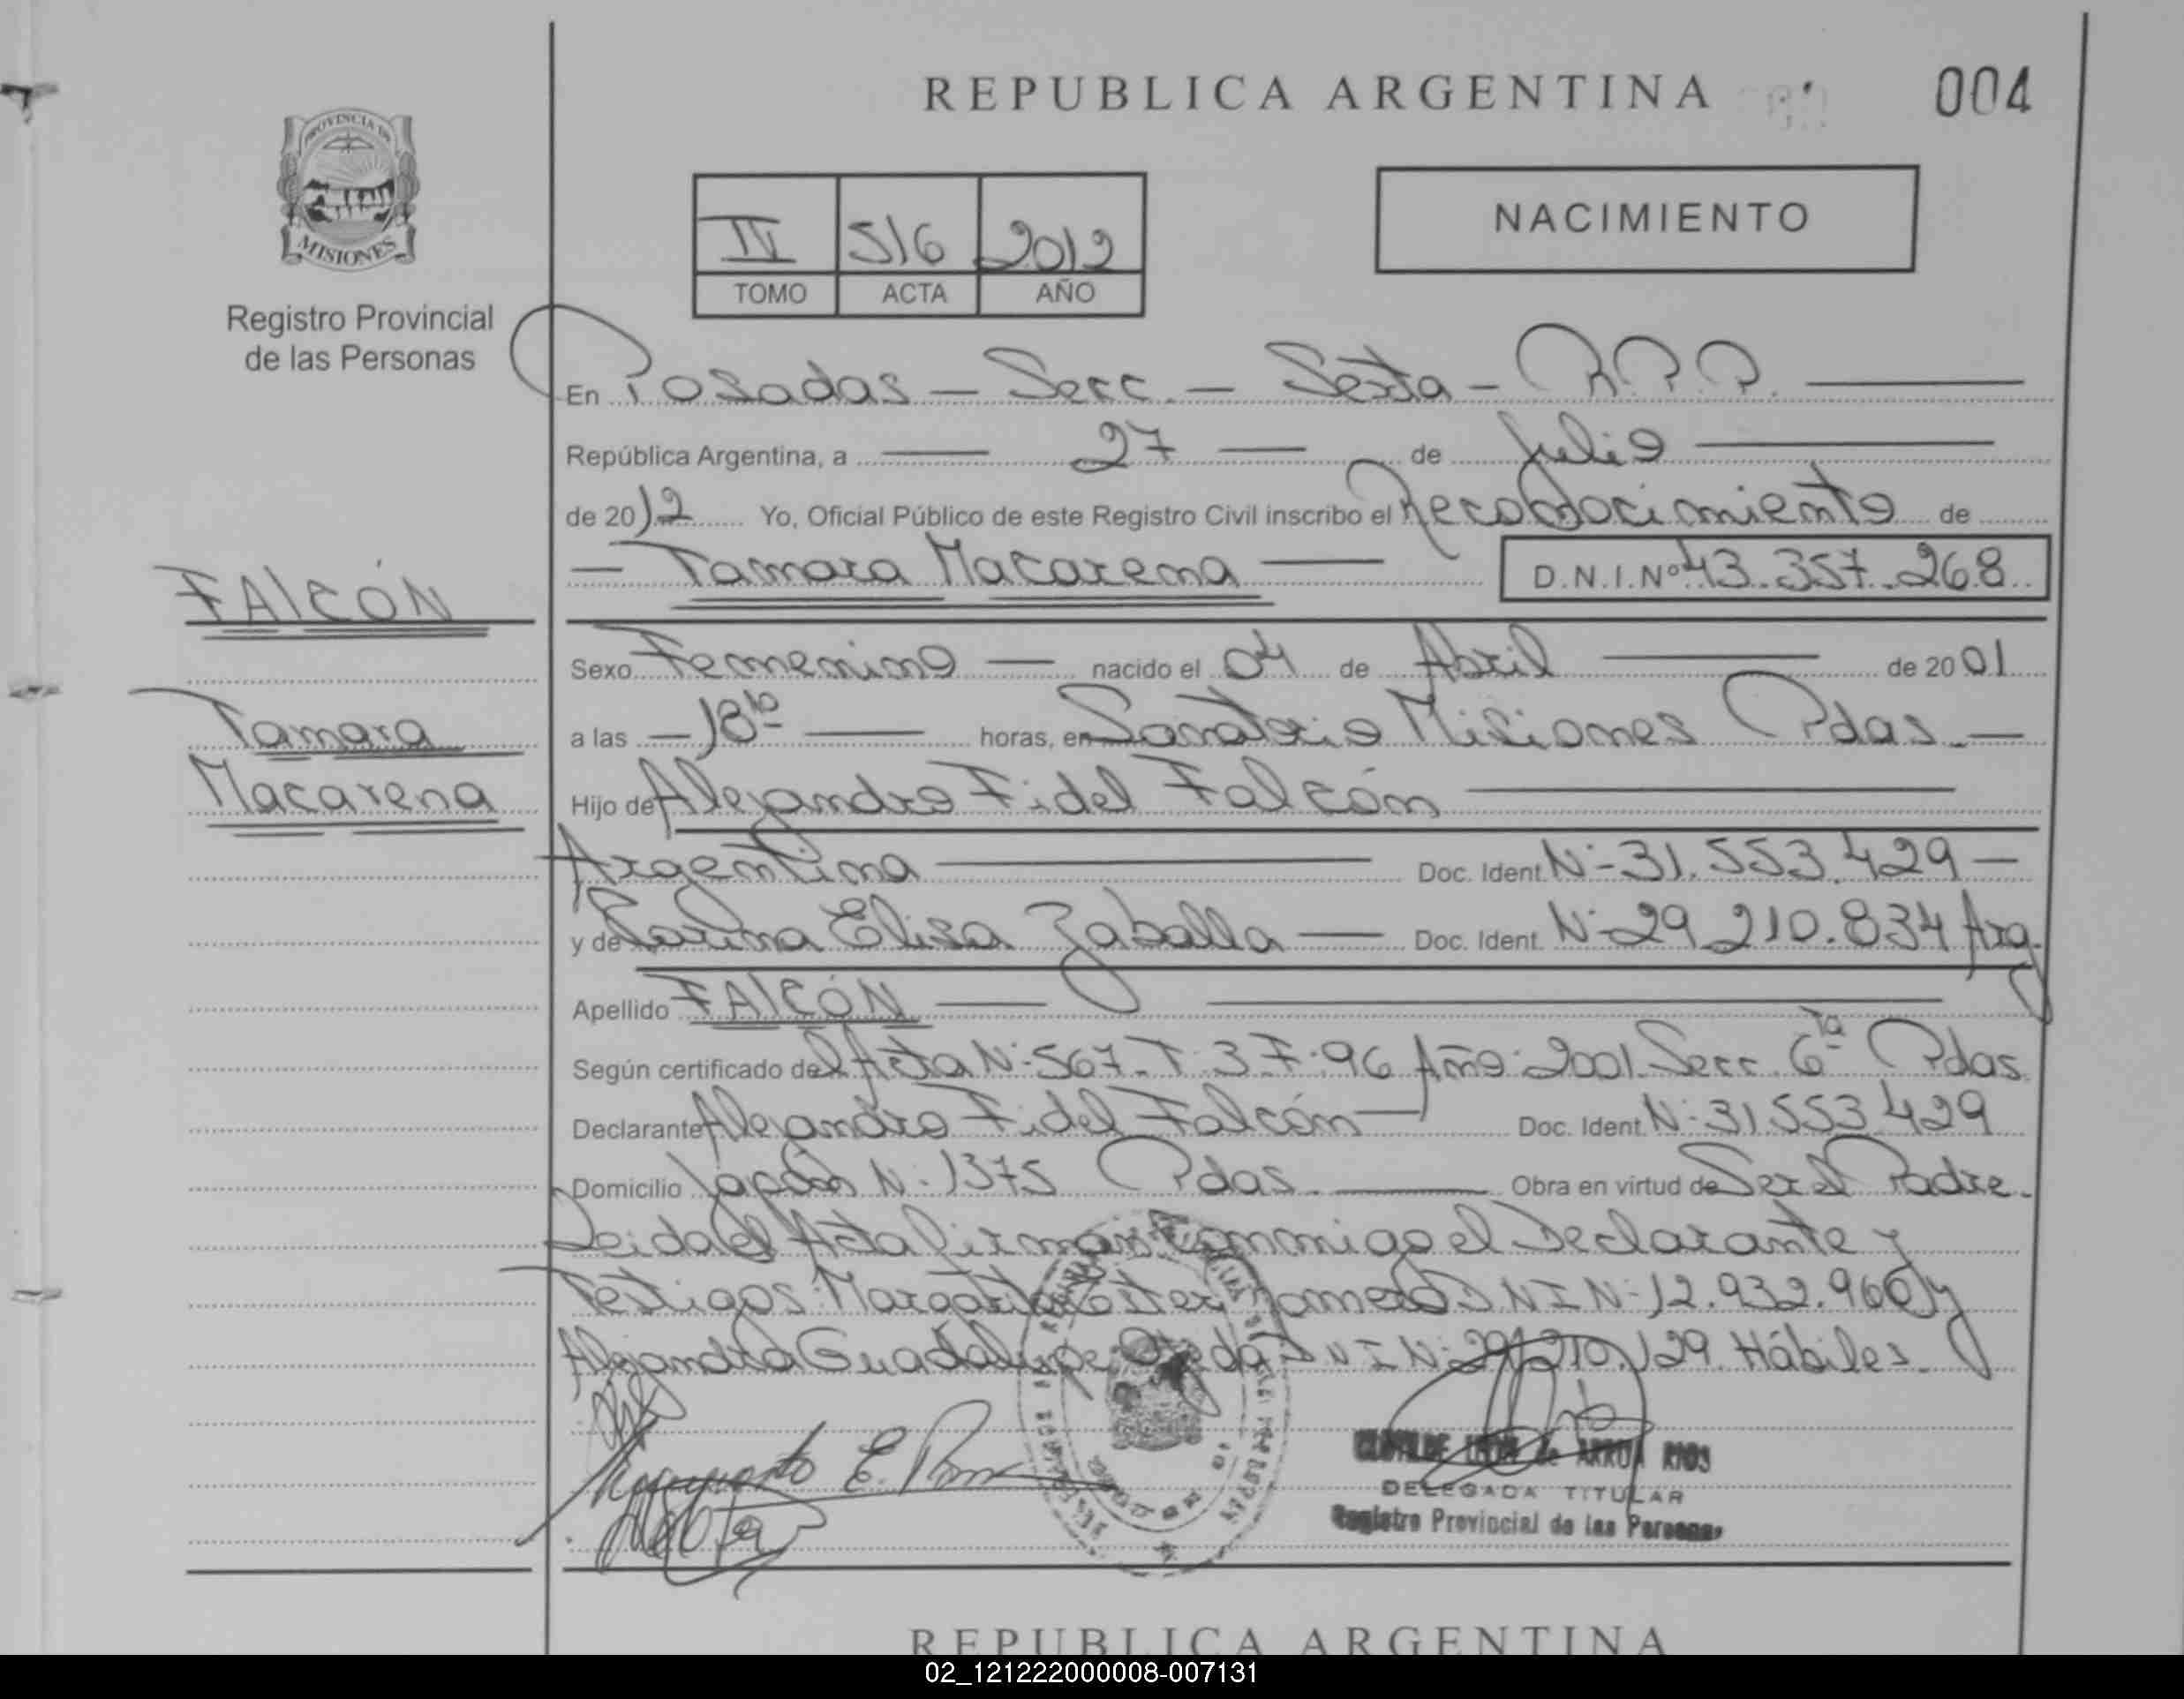 REPUBLICA ARGENTINA
004
PROVINCIA DE
MISIONES
Registro Provincial
de las Personas
IV 516 2012
TOMO ACTA AÑO
NACIMIENTO
En Posadas - Secc. - Sexta - R.P.P.
República Argentina, a 27 de Julio
de 2012 Yo, Oficial Público de este Registro Civil inscribo el Reconocimiento de
Tamara Macarena D.N.I.Nº 43.357.268
FAlCÓN
Tamara
Macarena
Sexo Femenino nacido el 04 de Abril de 2001
a las 18 horas, en Sanatorio Misiones Pdas.
Hijo de Alejandro Fidel Falcón
Argentina Doc. Ident. Nº 31.553.429
y de Elisa Zaballa Doc. Ident. Nº 29.210.834 Arg.
Apellido FAlCÓN
Según certificado del Acta Nº 567- T: 3 F: 96 Año: 2001. Secc. 6ta Pdas.
Declarante Alejandro Fidel Falcón Doc. Ident. Nº 31.553.429
Domicilio Japón Nº 1375 Pdas. Obra en virtud de Ser el Padre.
Leida el Acta firman conmigo el Declarante y
Testigos: Margarita Ester DNI Nº 12.932.960 y
Alejandra Guadalupe DNI Nº 29.210.129. Hábiles.
de ARROA RIOS
DELEGADA TITULAR
Registro Provincial de las Personas
REPUBLICA ARGENTINA
02_121222000008-007131